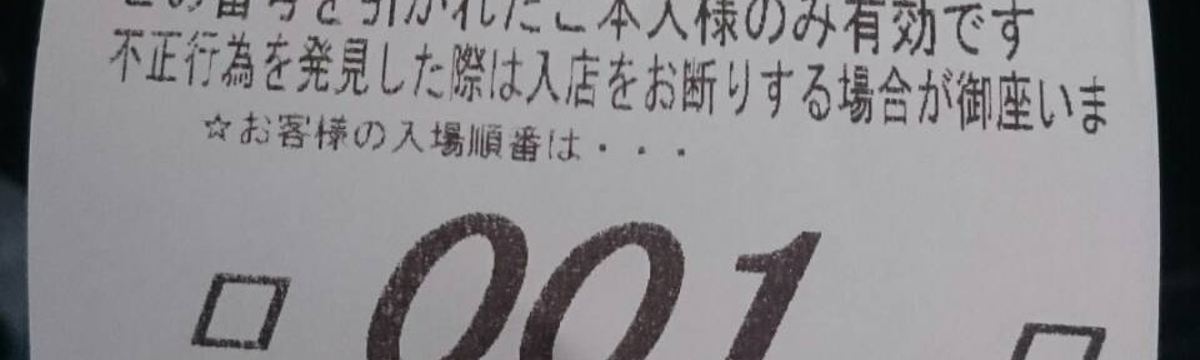 この番号を引かれたご本人様のみ有効です
不正行為を発見した際は入店をお断りする場合が御座いま
☆お客様の入場順番は・・・
□ 001 □